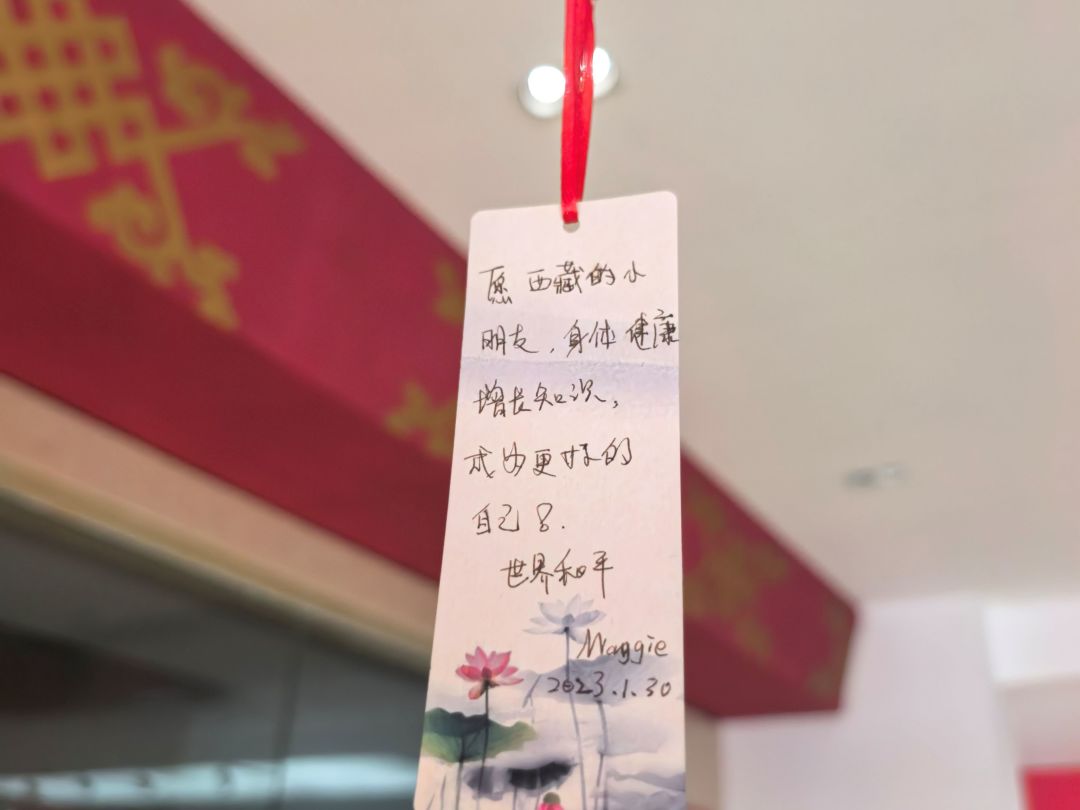 愿西藏的小
朋友,身体健康
增长知识,
成为更好的
自己.
世界和平
Maggie
2023.1.30